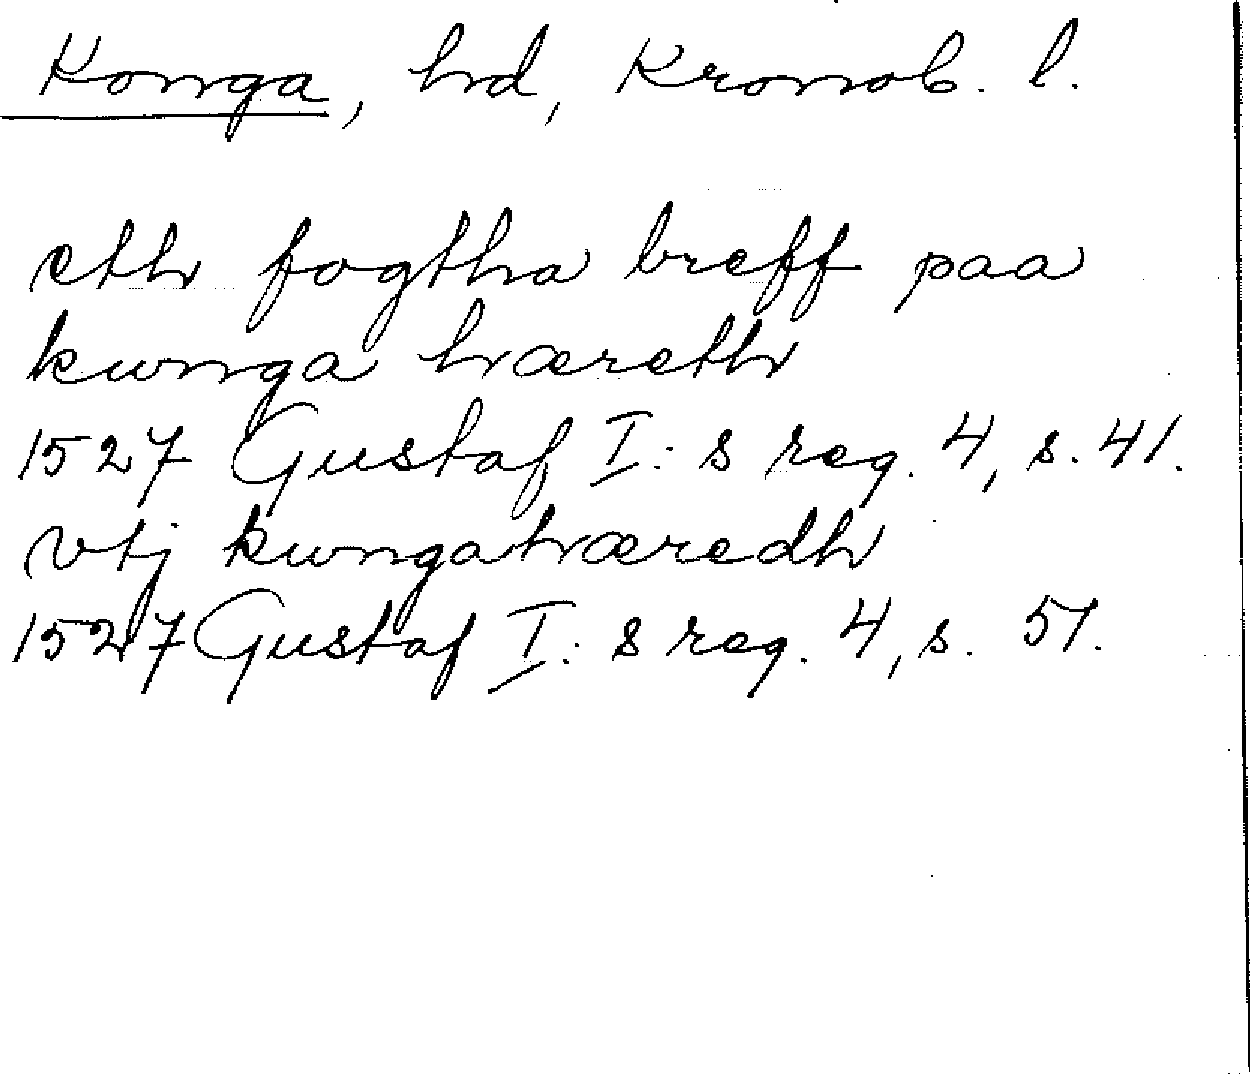 Konga, hd, Kronob. l.
eth fogtha breff paa
kunga hæreth
1527 Gustaf I:s reg. 4, s. 41.
vtj kungahæredh
1527 Gustaf I:s reg. 4, s. 51.